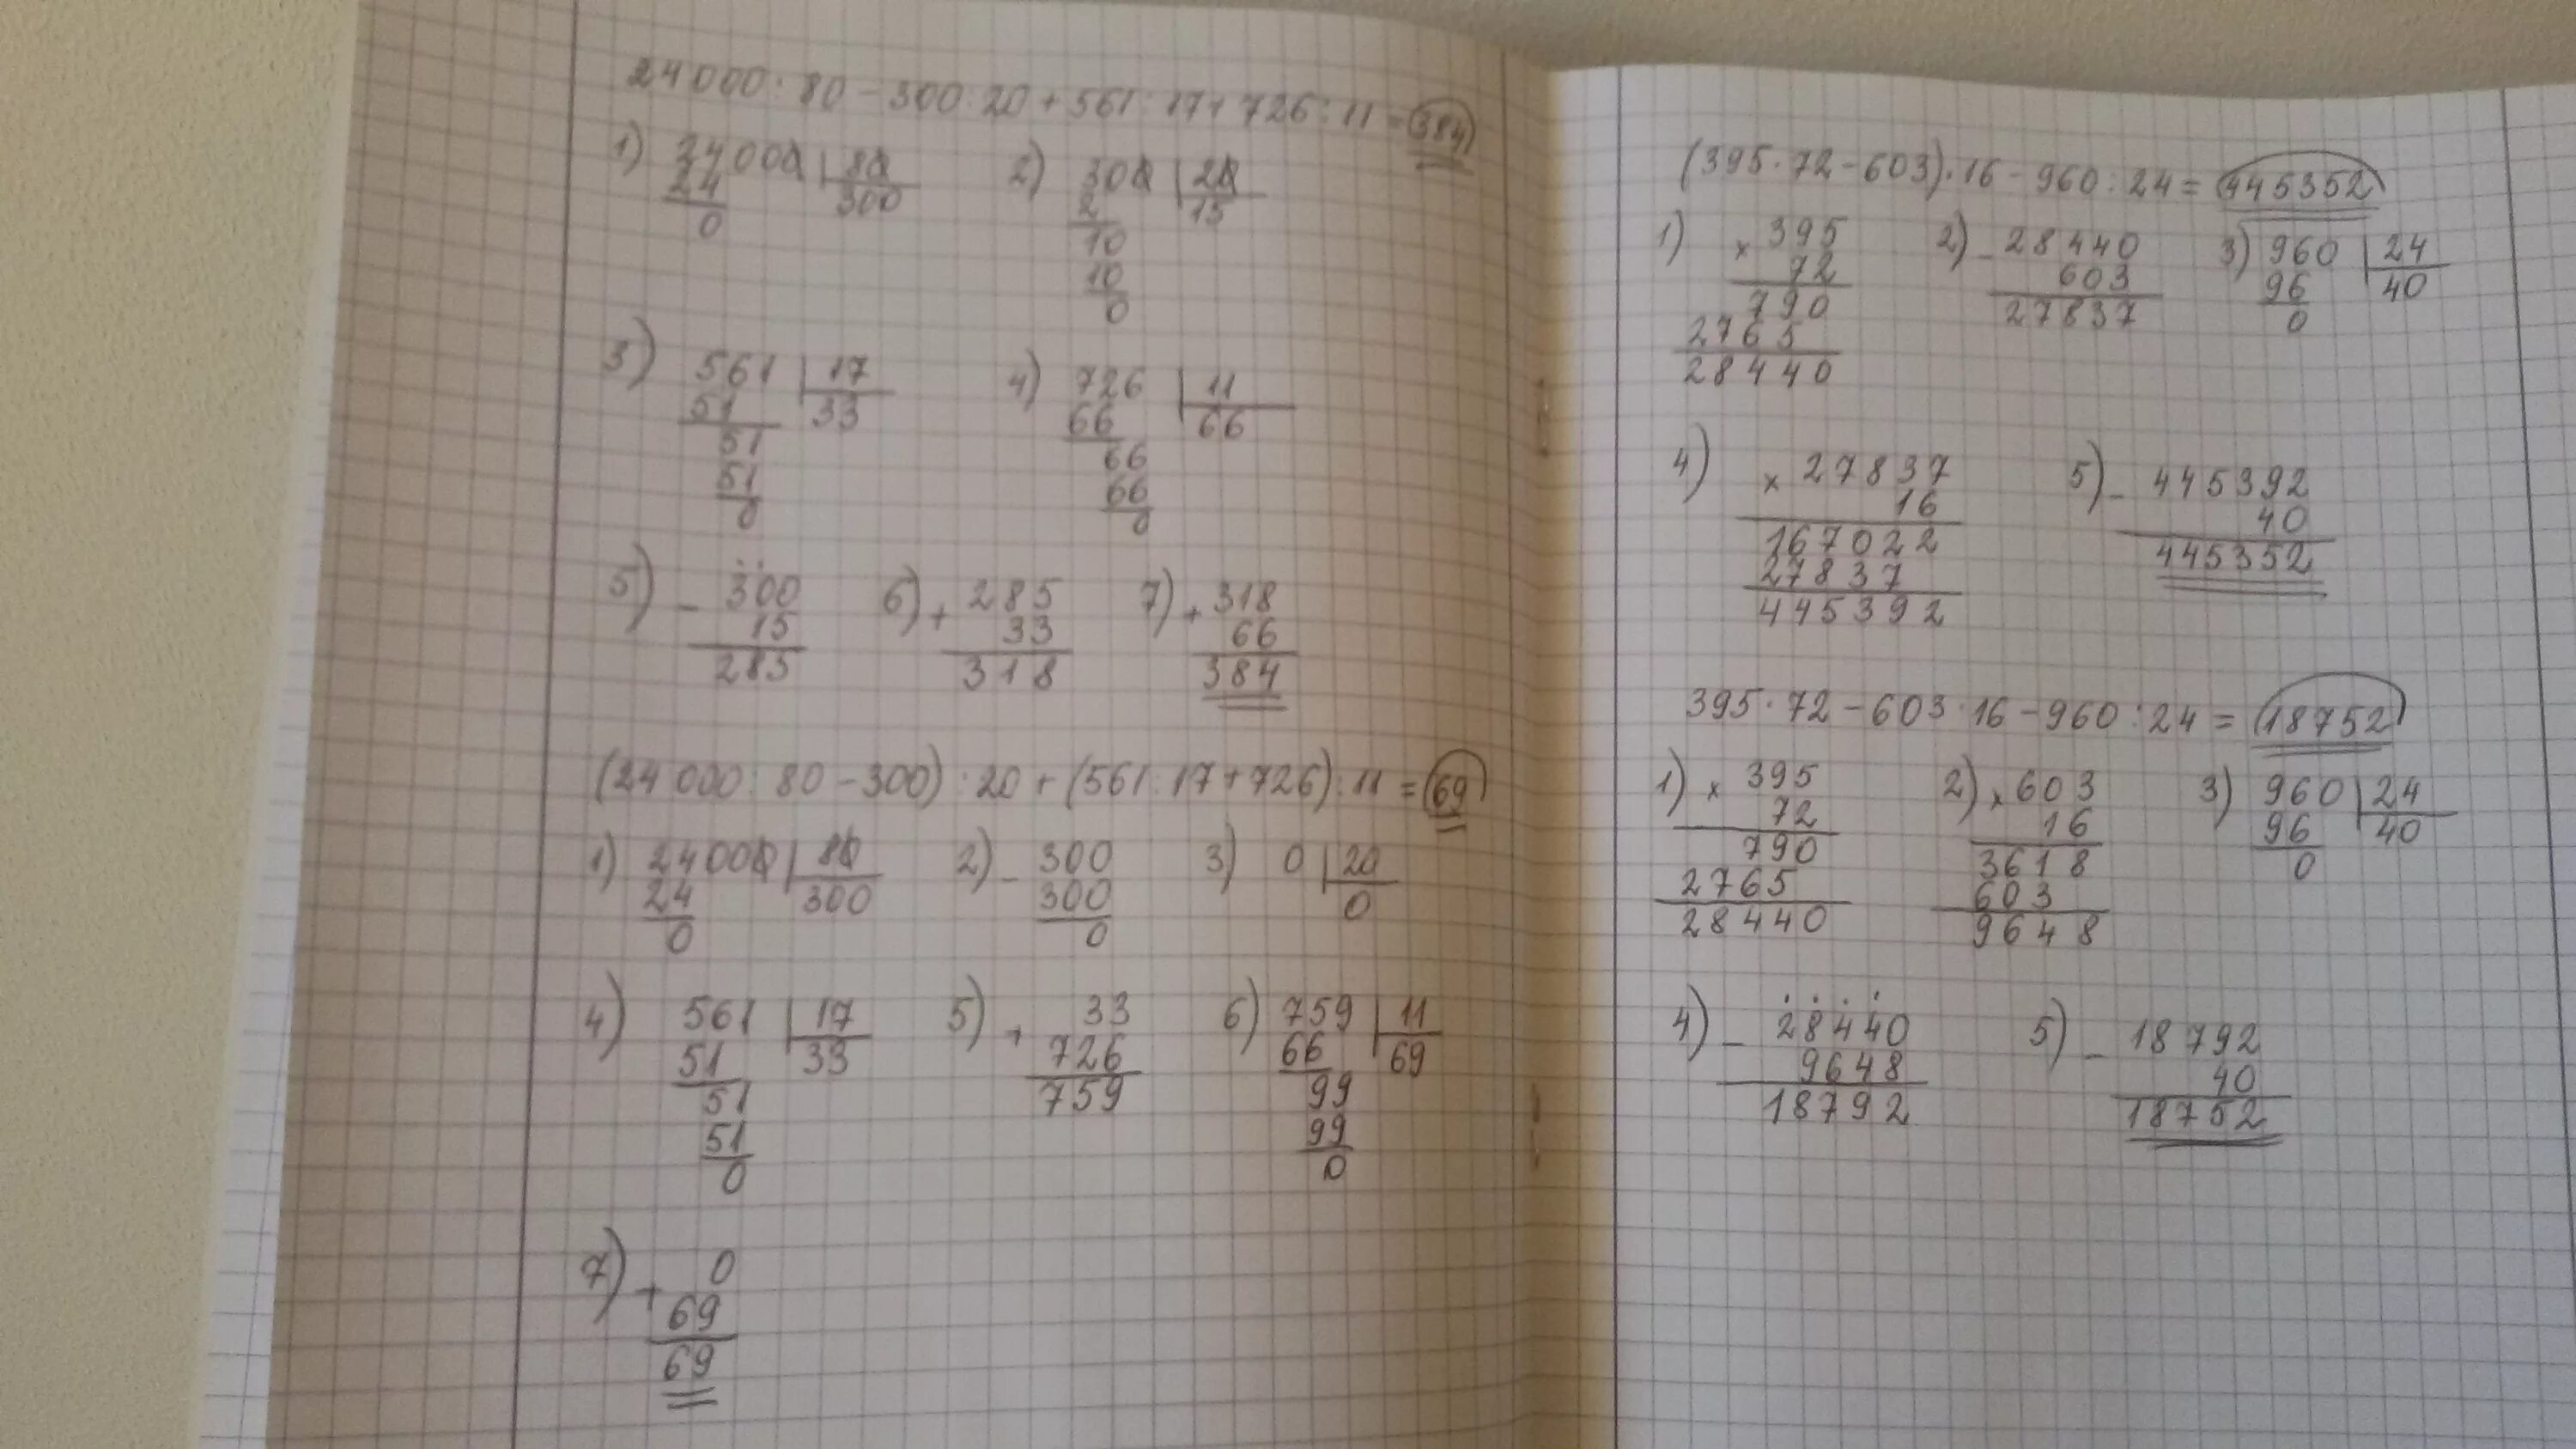 24000 : 80 - 300 : 20 + 561 : 17 + 726 : 11 = 384
1) 24000 | 80
24 | 300
0
2) 300 | 20
2 | 15
10
10
0
3) 561 | 17
51 | 33
51
51
0
4) 726 | 11
66 | 66
66
66
0
5) - 300
15
285
6) + 285
33
318
7) + 318
66
384
(24000 : 80 - 300) : 20 + (561 : 17 + 726) : 11 = 69
1) 24000 | 80
24 | 300
0
2) - 300
300
0
3) 0 | 20
0
4) 561 | 17
51 | 33
51
51
0
5) + 33
726
759
6) 759 | 11
66 | 69
99
99
0
7) + 0
69
69
(395 · 72 - 603) · 16 - 960 : 24 = 445352
1) × 395
72
790
2765
28440
2) - 28440
603
27837
3) 960 | 24
96 | 40
0
4) × 27837
16
167022
27837
445392
5) - 445392
40
445352
395 · 72 - 603 · 16 - 960 : 24 = 18752
1) × 395
72
790
2765
28440
2) × 603
16
3618
603
9648
3) 960 | 24
96 | 40
0
4) - 28440
9648
18792
5) - 18792
40
18752